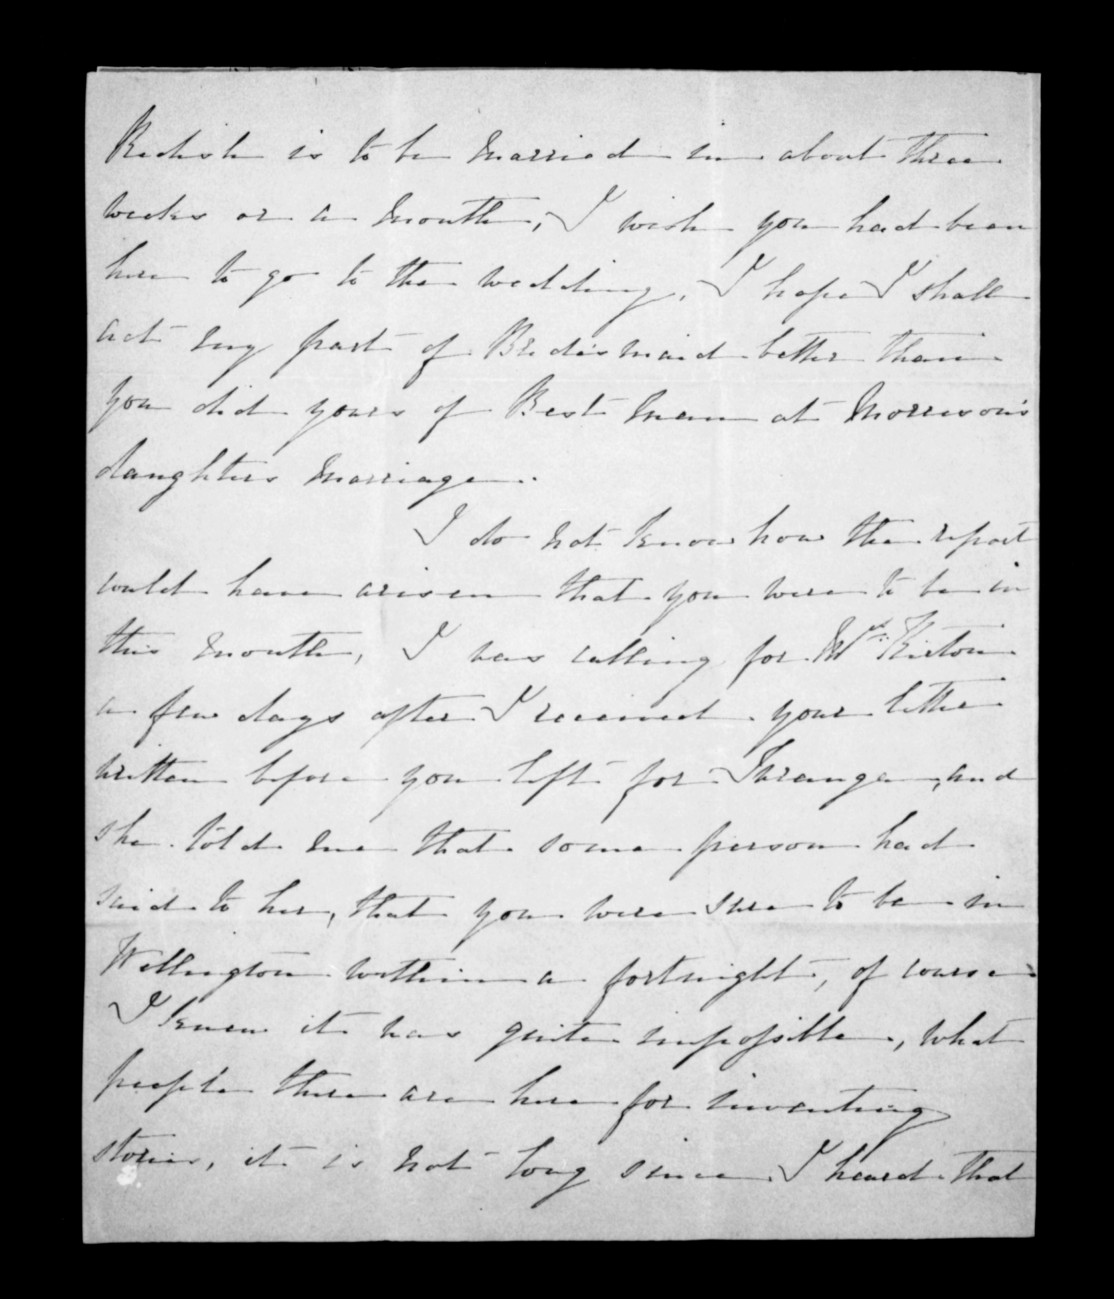 Redish is to be married in about three
weeks or a month, I wish you had been
here to go to the wedding, I hope I shall
act my part of Bridesmaid better than
you did yours of Best man at Morrison's
daughters marriage.
I do not know how the report
could have arisen that you were to be in
this month, I was calling for Mrs. Kirton
a few days after I received your letter
written before you left for Turanga, and
she told me that some person had
said to her, that you were sure to be in
Wellington within a fortnight, of course
I knew it was quite impossible, what
people there are here for inventing
stories, it is not long since I heard that